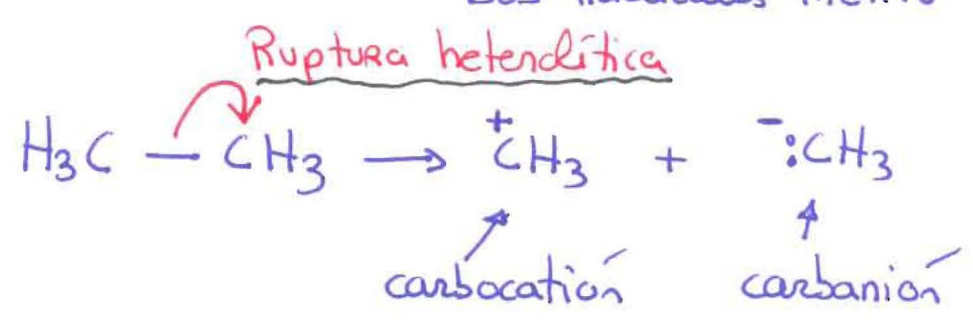 Ruptura heterolítica
H₃C — CH₃ → ⁺CH₃ + ⁻:CH₃
carbocatión carbanión